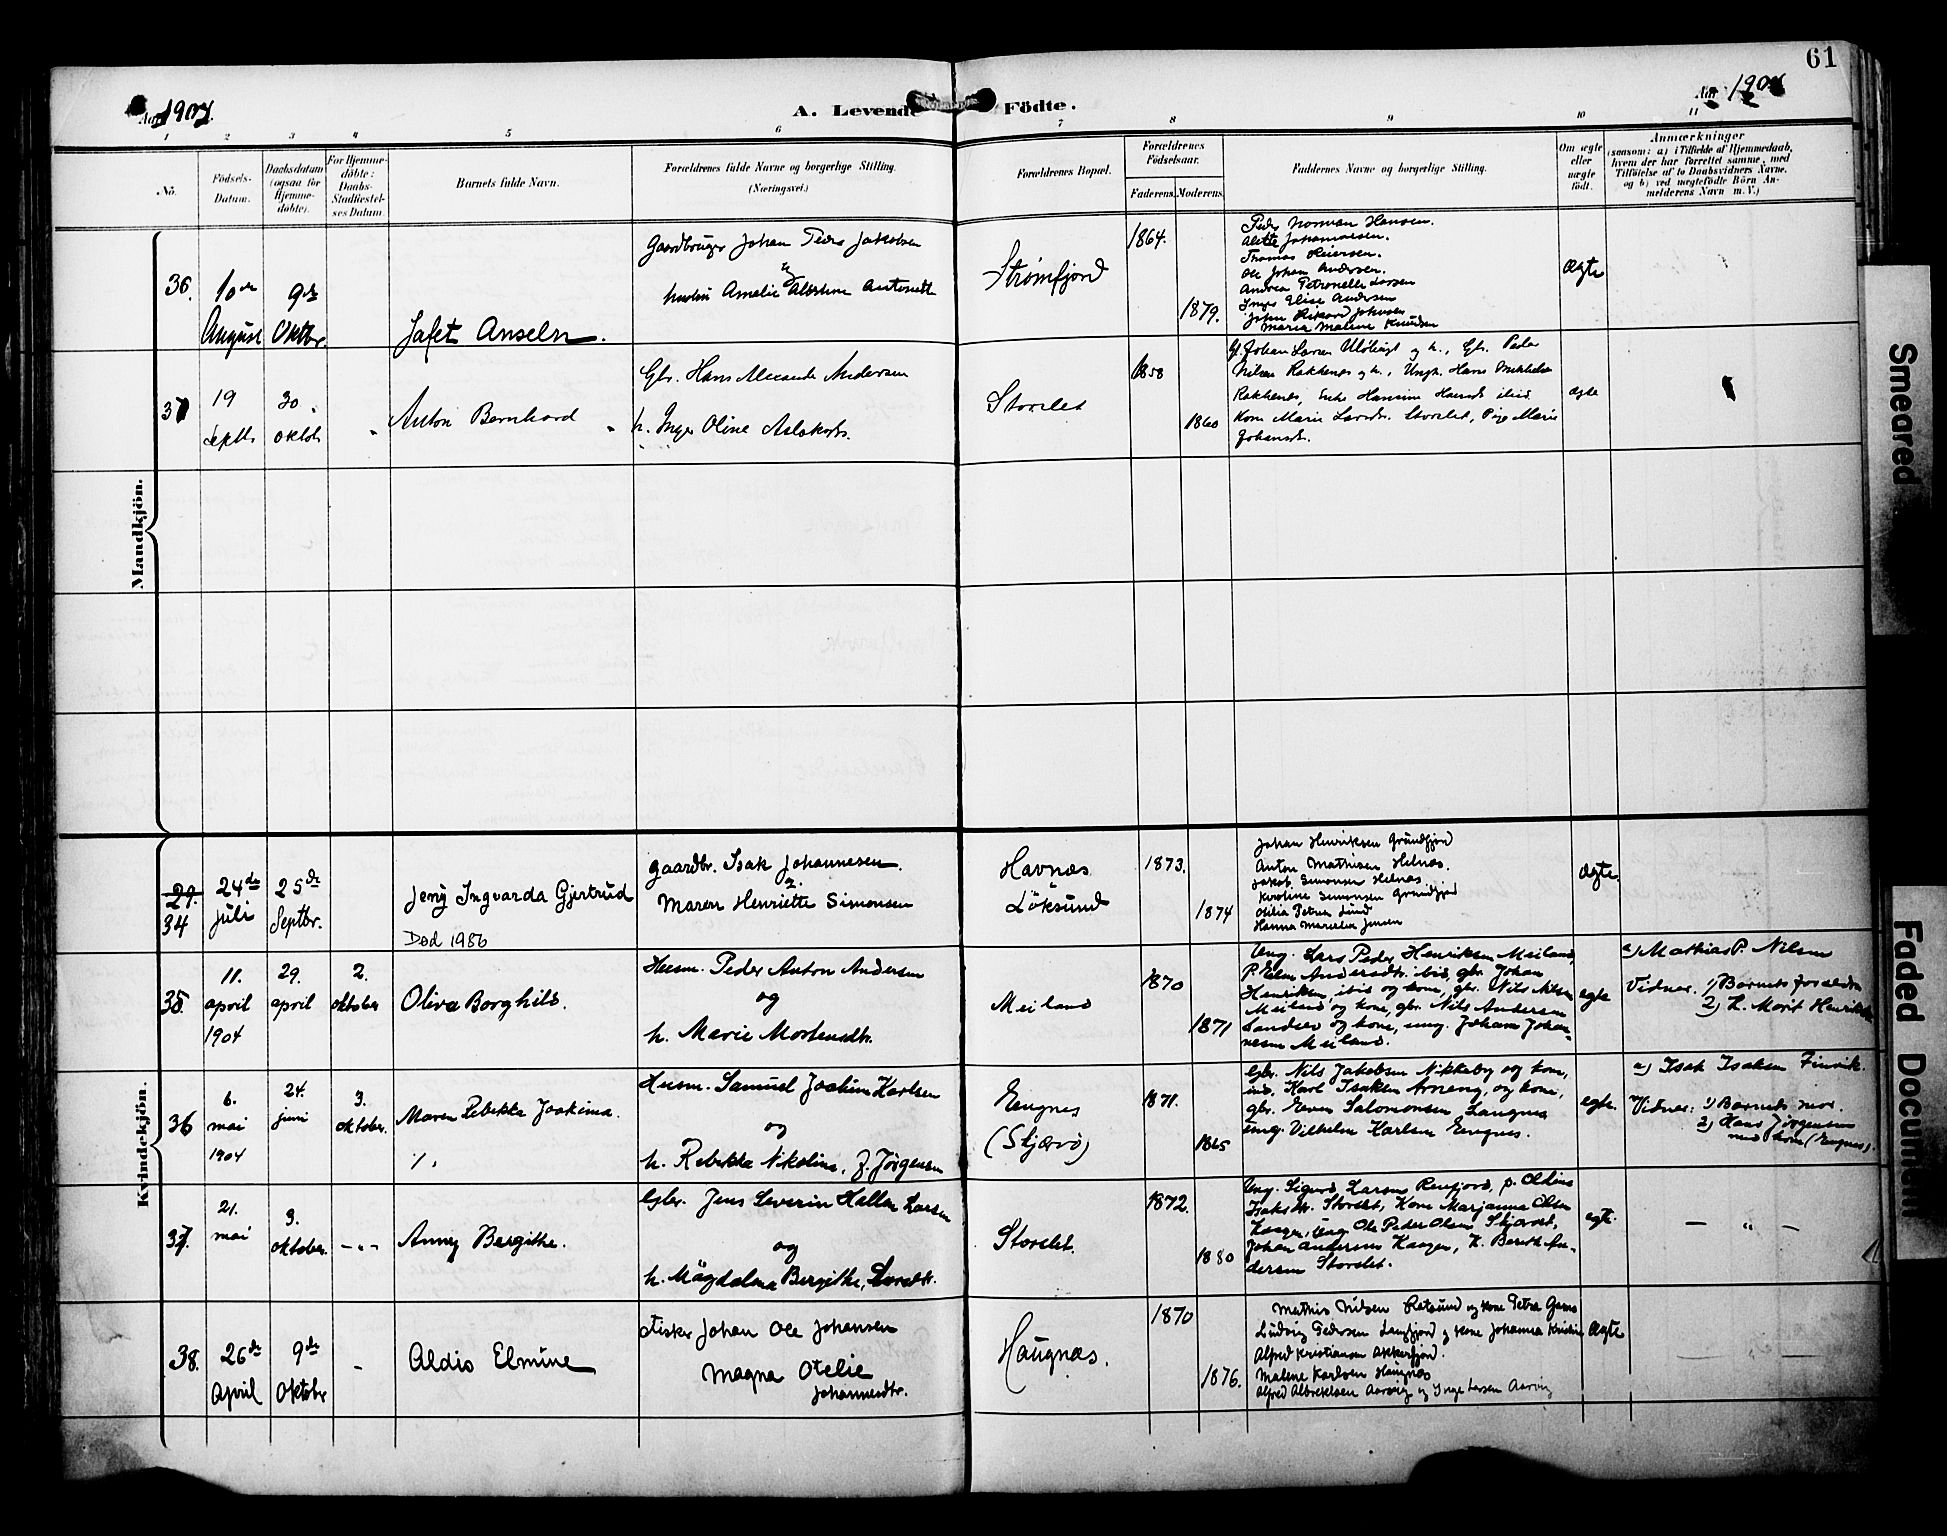 61
Aar 1904.
A. Levende Födte.
Aar 1904
1 2 3 4 5 6 7 8 9 10 11
No.
Födsels-Datum.
Daabsdatum (ogsaa for Hjemme-döbte).
For Hjemme-döbte: Daabs-Stadfæstel-ses Datum.
Barnets fulde Navn.
Forældrenes fulde Navne og borgerlige Stilling.
(Næringsvei.)
Forældrenes Bopæl.
Forældrenes Födselsaar.
Faderens. Moderens.
Faddernes Navne og borgerlige Stilling.
Om ægte eller uægte födt.
Anmærkninger
(saasom: a) i Tilfælde af Hjemmedaab,
hvem der har forrettet samme, med
Tilföielse af to Daabsvidners Navne,
og b) ved uægtefödte Börn An-
melderens Navn m. V.)
Mandkjön.
36.
10de August
9de Oktbr.
Jafet Anselm.
Gaardbruger Johan Peder Jakobsen
og
hustru Amalie Albertine
Strømfjord
1864.
1879.
Peder Norman Hansen.
Alette Johannesen.
Thomas
Ole Johan Andersen.
Andrea Petronelle Larsen
Inger Elise Andersen
Johan Rikard Johnsen
Maria Malene Knudsen
Ægte
37
19 Septb.
30 oktob.
" Anton Bernhard "
Gbr. Hans Alexander Andersen
h. Inger Oline Aslaksdtr.
Storslet
1858
1860
G. Johan Larsen og h., Gbr. Peder
Nilsen Rakkenes og h., Ungk. Hans Mikkelsen
Rakkenes, Enke Hansine ibid.
Kone Marie Larsdtr. Storslet, Pige Marie
Johansdt.
ægte
Kvindekjön.
29.
34
24de juli
25de Septbr.
Jeny Ingvarda Gjertrud
Død 1986
gaardbr. Isak Johannesen
og
Maren Henriette Simonsen
Havnæs
Löksund
1873.
1874
Johan Henriksen Grundfjord
Anton Mathisen Helnæs.
Jakob Simonsen Helnæs
Karoline Simonsen Grundfjord
Otilia Petrea Lund
Hanna Jensen
Ægte.
35.
11. april 1904
29. april
2. oktober
Oliva Borghild.
Husm. Peder Anton Andersen
og
h. Marie Mortensdtr.
Meiland
1870
1871
Ung. Lars Peder Henriksen Meiland,
P. Elen Andersdtr. ibid, gbr. Johan
Henriksen, ibid og kone, gbr. Nils Nilsen
Meiland og kone, gbr. Nils Andersen
og kone, ung. Johan Johan-
nesen Meiland.
egte
a) Mathias P. Nilsen
Vidner: 1) Barnets forældre
2) h. Marit Henriksen
36
6. mai 1904
24. juni
3. oktober.
Maren Rebekka Joakima.
Husm. Samuel Joakim Karlsen
og
h. Rebekka Nikolina, f. Jørgensen
Engnes
(Skjærvö)
1871.
1865
Gbr. Nils Jakobsen Nikkeby og kone,
ind. Karl Isaksen Arneng, og kone,
gbr. Even Salomonsen Langnes
ung. Vilhelm Karlsen Engnes.
egte.
a) Isak Isaksen Finvik.
Vidner: 1) Barnets mor.
2) Hans Jørgensen
med kone (Engnes).
37.
21. mai
3. oktober.
- " -
Anny Bergithe.
Gbr. Jens Severin Hallan Larsen
og
h. Magdalena Bergithe, Larsdtr.
Storslet.
1872.
1880
Ung. Sigurd Larsen Reinfjord, p. Oldine
Isaksdtr. Storslet, Kone Marjanna Olsen
Kaagen, Ung. Ole Peder Olsen Skjærvö,
Johan Andersen Kaagen, K. Bereth An-
dersen Storslet.
egte.
- " -
38.
26de April
9de Oktobr
-
Aldis Elmine
Fisker Johan Ole Johansen
Magna Otelie
Johannesdtr.
Haugnæs.
1870
1876.
Mathis Nilsen Rotsund og kone Petra
Ludvig Pedersen Langfjord og kone Johanna Kristine
Alfred Kristiansen Akkarfjord.
Malene Karlsen Haugnæs
Alfred Albrektsen Aarvig og Inger Larsen Aarvig
Ægte
- " -
Smeared
Faded Document